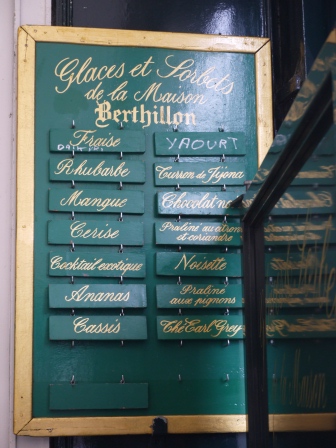 Glaces et Sorbets
de la Maison
Berthillon
Fraise
Rhubarbe
Mangue
Cerise
Cocktail exotique
Ananas
Cassis
YAOURT
Turron de Jijona
Chocolat
Praliné au citron
et coriandre
Noisette
Praliné
aux pignons
Thé Earl Grey